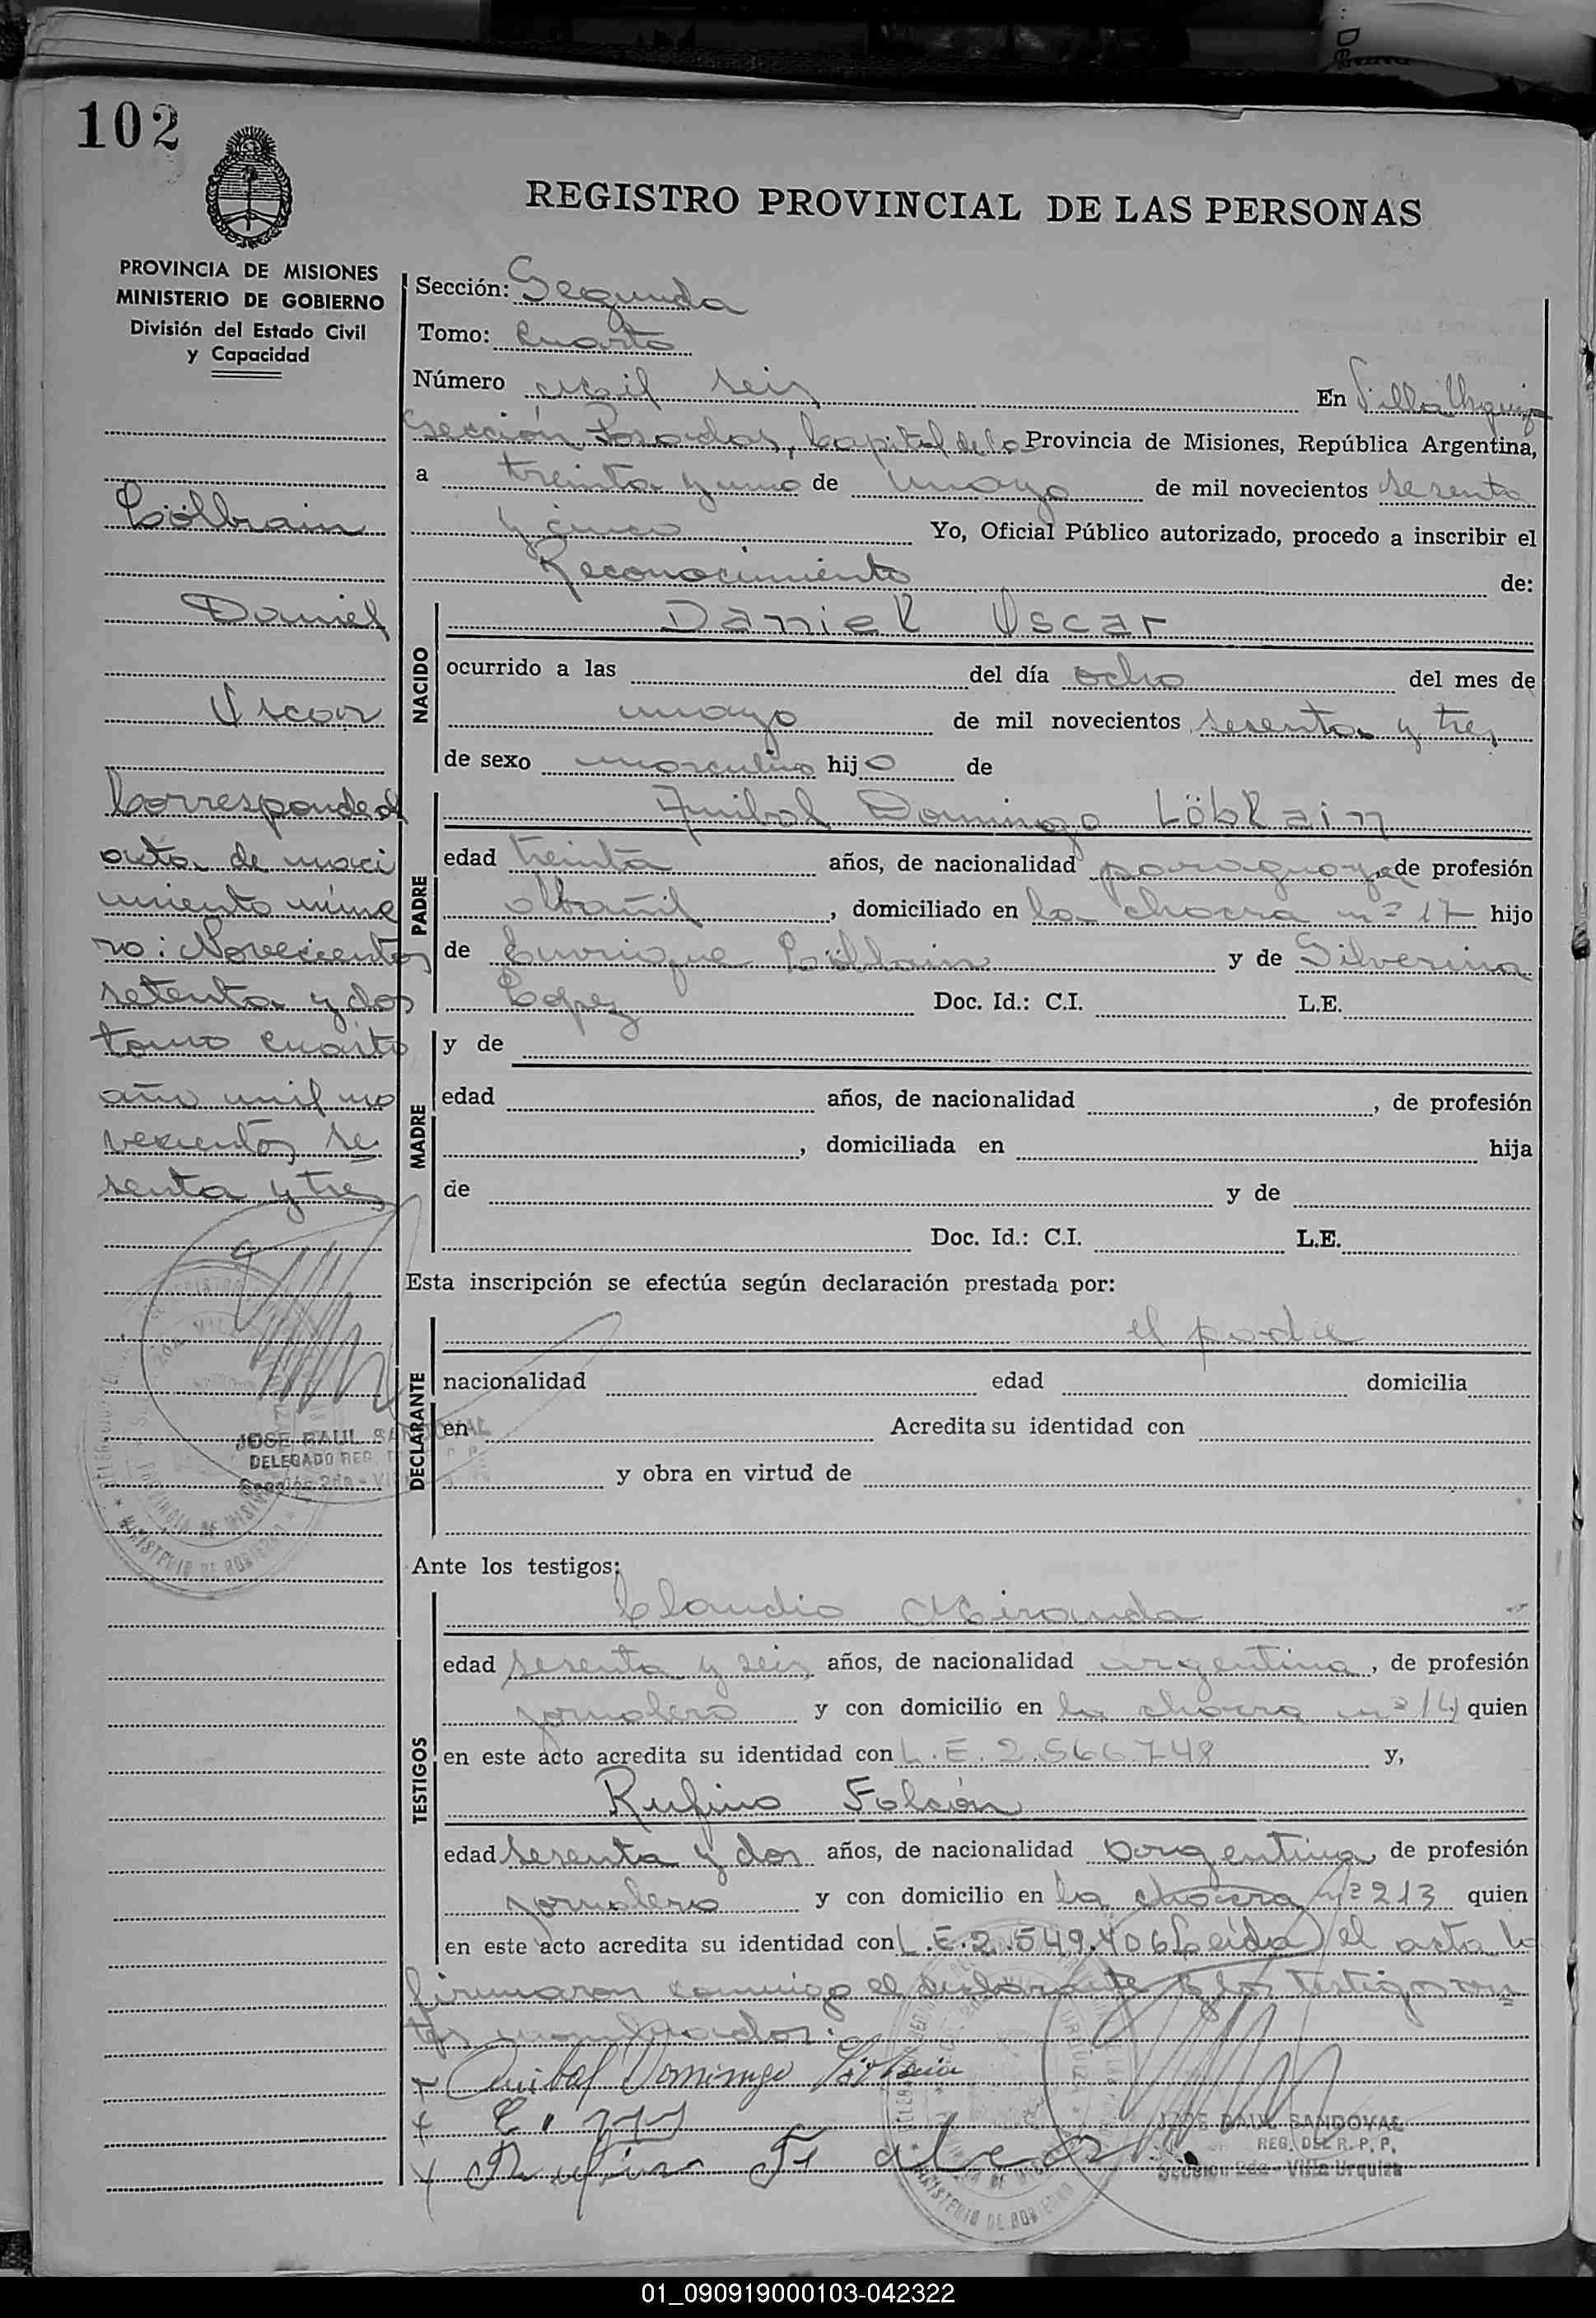 102
REGISTRO PROVINCIAL DE LAS PERSONAS
PROVINCIA DE MISIONES
MINISTERIO DE GOBIERNO
División del Estado Civil
y Capacidad
Sección: Segunda
Tomo: Cuarto
Número mil seis En Villa Urquiza
Sección Posadas, Capital de la Provincia de Misiones, República Argentina,
a treinta y uno de mayo de mil novecientos sesenta
y cinco Yo, Oficial Público autorizado, procedo a inscribir el
Reconocimiento de:
Cölbrain
Daniel
Oscar
Corresponde al
acta de naci
miento núme
ro: Novecientos
setenta y dos
tomo cuarto
año mil no
vecientos se
senta y tres
JOSE RAUL SANDOVAL
DELEGADO REG. DEL R. P. P.
Sección 2da - Villa Urquiza
NACIDO
Daniel Oscar
ocurrido a las del día ocho del mes de
mayo de mil novecientos sesenta y tres
de sexo masculino hijo de
PADRE
Anibal Domingo Löblain
edad treinta años, de nacionalidad paraguaya, de profesión
albañil, domiciliado en la chacra nº 17 hijo
de Enrrique y de Silverina
Lopez Doc. Id.: C.I. L.E.
MADRE
y de
edad años, de nacionalidad , de profesión
, domiciliada en hija
de y de
Doc. Id.: C.I. L.E.
Esta inscripción se efectúa según declaración prestada por:
DECLARANTE
el padre
nacionalidad edad domicilia
en Acredita su identidad con
y obra en virtud de
Ante los testigos:
TESTIGOS
Claudio Miranda
edad sesenta y seis años, de nacionalidad argentina, de profesión
jornalero y con domicilio en la chacra nº 14 quien
en este acto acredita su identidad con L.E. 2.566.748 y,
Rufino Falcón
edad sesenta y dos años, de nacionalidad argentina, de profesión
jornalero y con domicilio en la chacra nº 213 quien
en este acto acredita su identidad con L.E. 2.549.406 Leída el acta la
firmaron conmigo el declarante y los testigos an
tes nombrados.
Anibal Domingo
C.
Rufino Falcon
JOSE RAUL SANDOVAL
REG. DEL R. P. P.
Sección 2da - Villa Urquiza
01_090919000103-042322